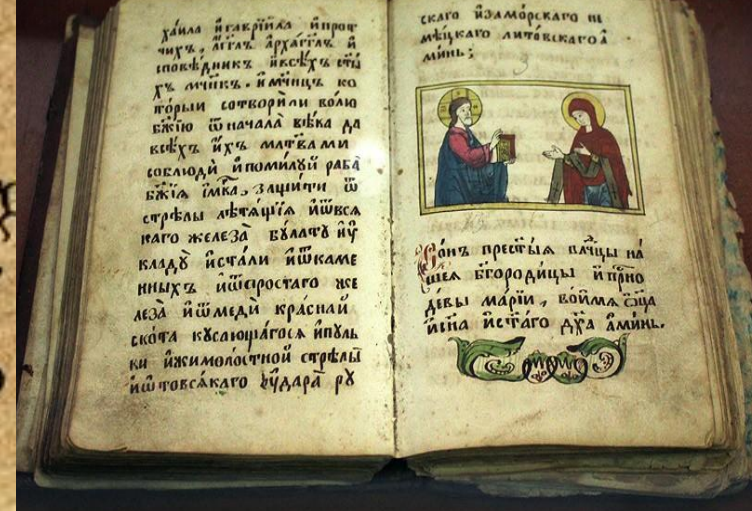 ха́ила и҆ гаврїи́ла и҆ проⷱ҇
чихъ, а҆́гг҃лъ а҆рха́гг҃лъ и҆
сповѣ́дникъ и҆ всѣ́хъ ст҃ы
хъ мч҃нкъ. и҆ мч҃ницъ ко
то́рыи сотвори́ли во́лю
бж҃їю ѿ нача́ла вѣ́ка да
всѣ́хъ и҆́хъ мл҃твами
соблюди́ и҆ поми́луй раба̀
бж҃їѧ и҆́мкъ, защитѝ ѿ
стрѣлы̀ лѣтѧ́щїѧ и҆ ѿ всѧ
каго желе́за̀ була́ту и҆ ѹ҆
кладꙋ̀ и҆ ста́ли и҆ ѿ каме
нныхъ и҆ ѿ простаго же
леза̀ и҆ ѿ мѣ́ди кра́снай
ско́та кꙋслю́щагосѧ и҆ пꙋль
ки и҆ жимолостной стрѣлы̀
и҆ ѿ товсѧ́каго ѹ҆́дара̀ рꙋ
скаго и҆ замо́рскаго не
мѣ́цкаго лито́вскаго а҆
ми́нь;
Со́нъ прест҃ы́ѧ влⷣчцы на́
шеѧ бг҃оро́дицы и҆ прⷭ҇но
дѣ́вы мр҃їи, во и҆́мѧ ѻ҆ц҃а
и҆ сн҃а и҆ ст҃а́го дх҃а а҆ми́нь.